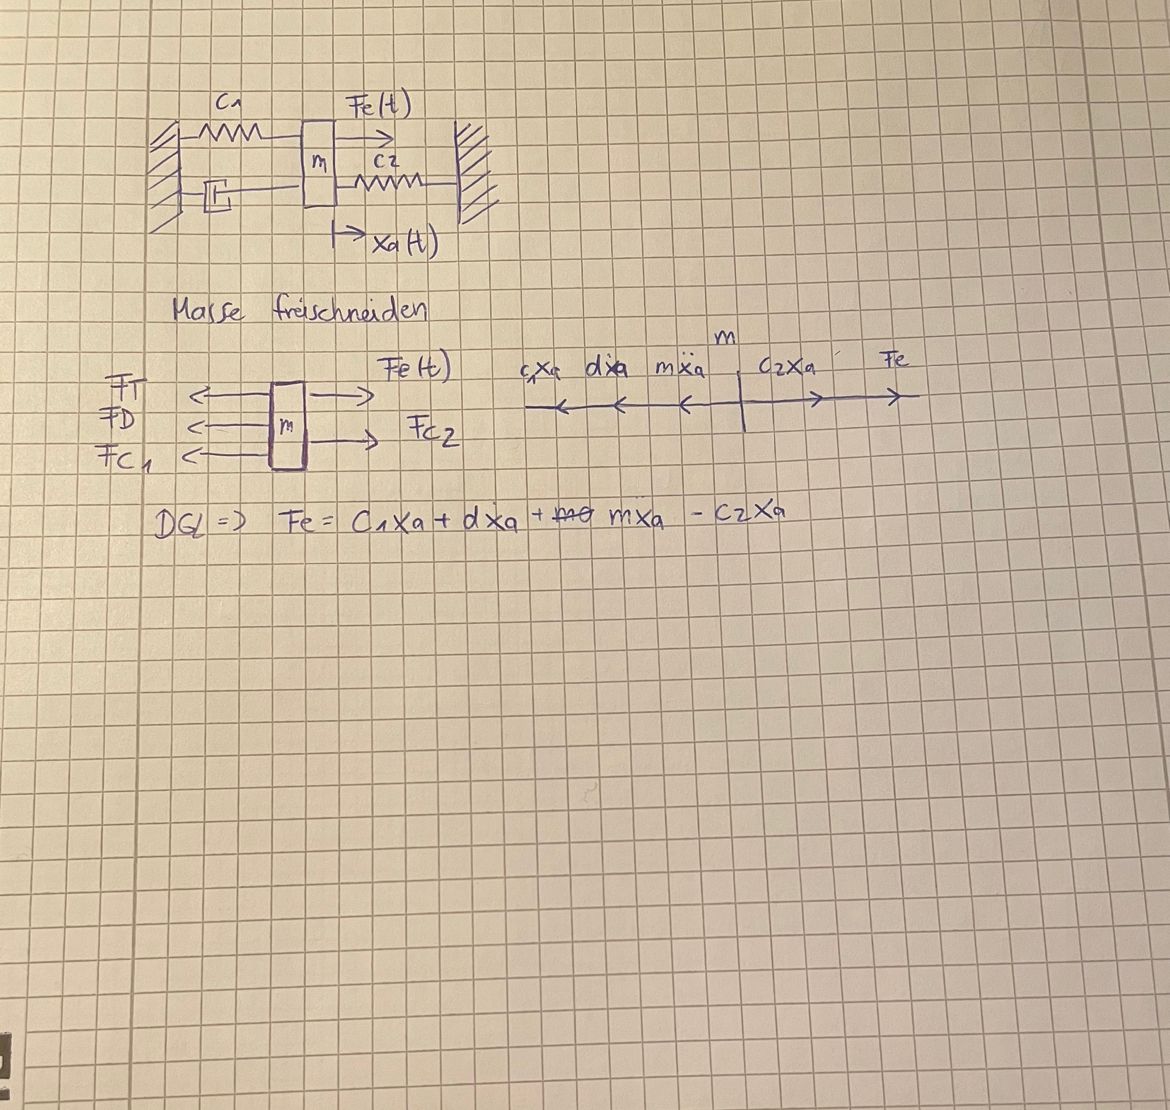 C1 Fe(t)
m C2
xa(t)
Masse freischneiden
FT Fe(t)
FD m FC2
FC1
m
c1xa dẋa mẍa C2xa Fe
DGL => Fe = C1xa + dẋa + mẍa - C2xa